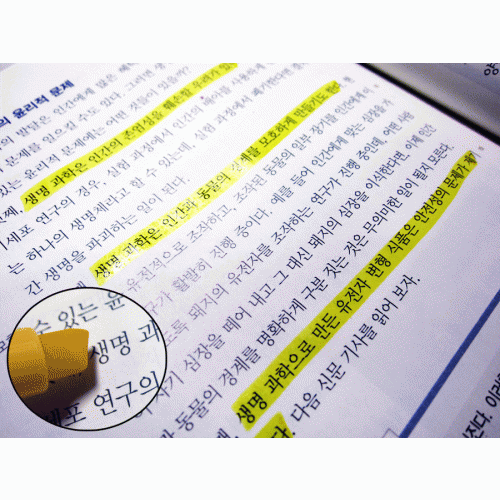 의 윤리적 문제
의 발달은 인간에게 많은 혜
문제를 일으킬 수도 있다. 그러면 생
있는 윤리적 문제에는 어떤 것들이 있을까?
째, 생명 과학은 인간의 존엄성을 훼손할 우려가 있
세포 연구의 경우, 실험 과정에서 인간의 배아를 사용하게
는 하나의 생명체라고 할 수 있는데, 실험 과정에서 폐기한다면 생
간 생명을 파괴하는 일이 된다.
생명 과학은 인간과 동물의 경계를 모호하게 만들기도 한
유전적으로 조작하고, 조작된 동물의 일부 장기를 인간에게 이
구가 활발히 진행 중이다. 예를 들어 인간에게 맞는 심장을 가
도록 돼지의 유전자를 조작하는 연구가 진행 중인데, 어떤 사람
자기 심장을 떼어 내고 그 대신 돼지의 심장을 이식한다면, 이제 인간
과 동물의 경계를 명확하게 구분 짓는 것은 무의미한 일이 될지 모른다.
생명 과학으로 만든 유전자 변형 식품은 안전성의 문제가
다. 다음 신문 기사를 읽어 보자.
수 있는 윤
생명 과
세포 연구의